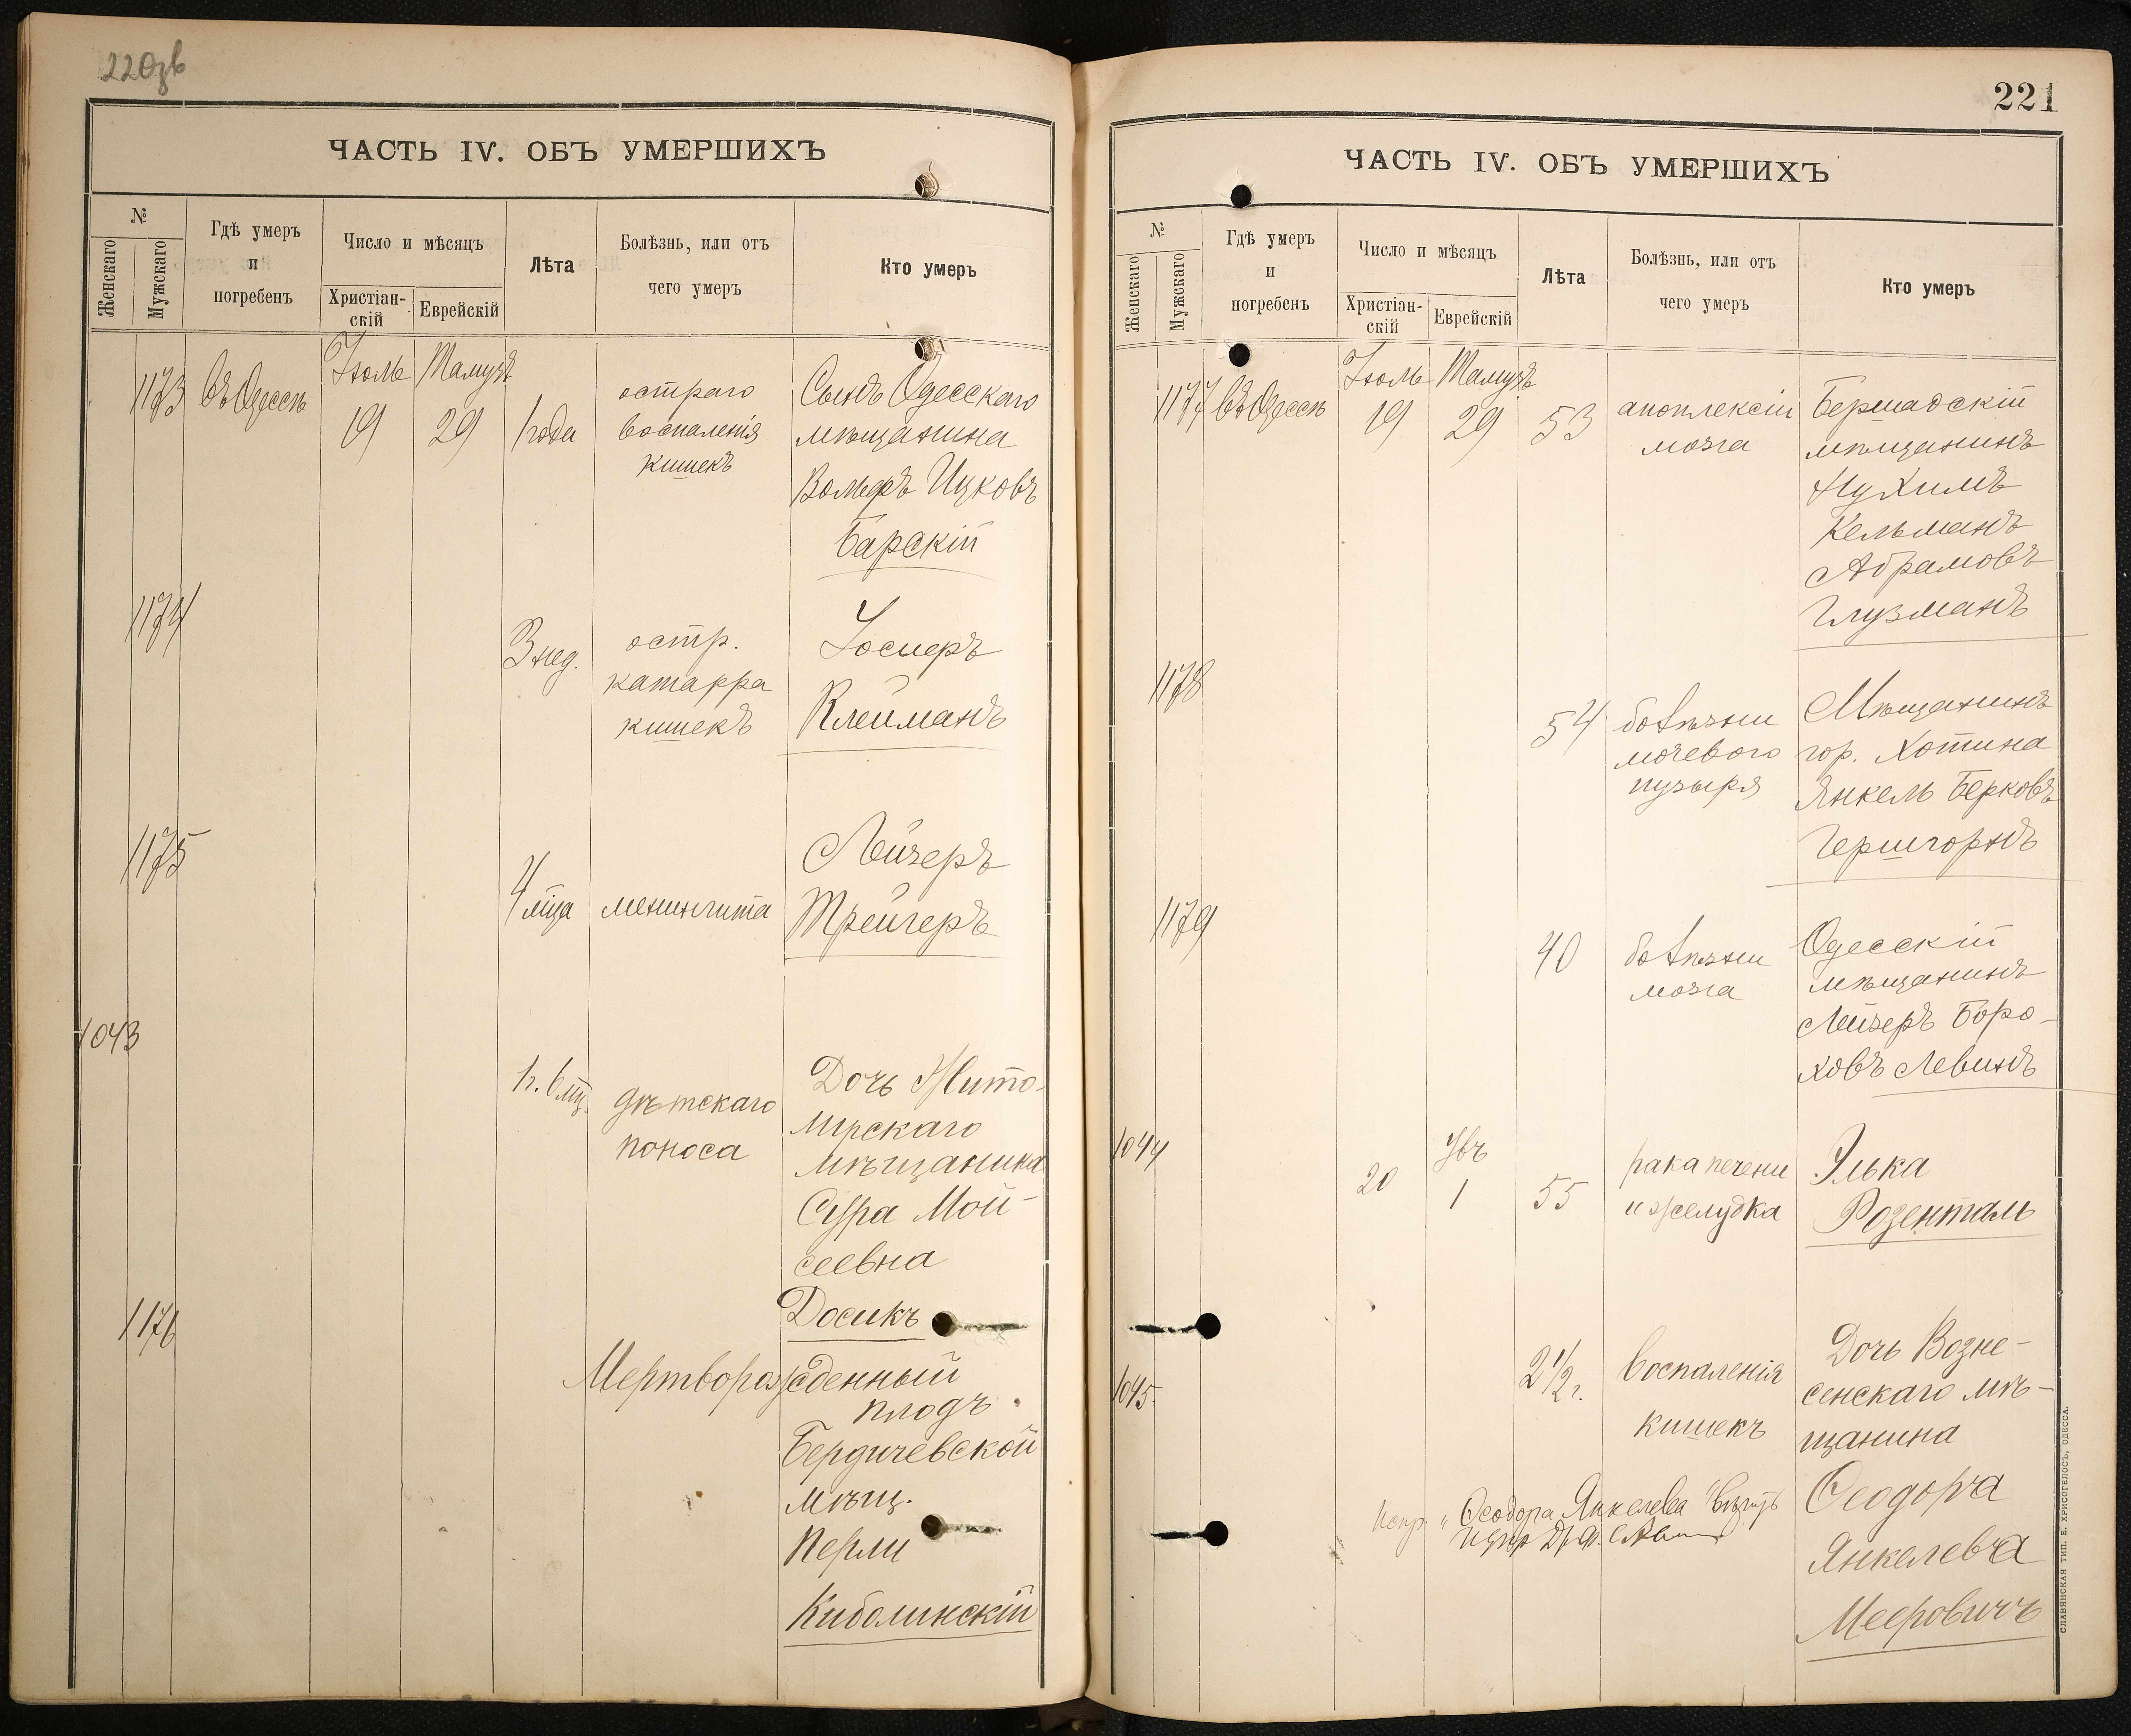 220зв
ЧАСТЬ IV. ОБЪ УМЕРШИХЪ
№
Женскаго
Мужскаго
Гдѣ умеръ
и
погребенъ
Число и мѣсяцъ
Христіан-
скій
Еврейскій
Лѣта
Болѣзнь, или отъ
чего умеръ
Кто умеръ
1173
въ Одессѣ
Іюль
19
Тамузъ
29
1 года
остраго
воспаленія
кишекъ
Сынъ Одесскаго
мѣщанина
Вольфъ Ицковъ
Барскій
1174
3 нед.
остр.
катарра
кишекъ
Іосперъ
Клейманъ
1175
4 мца
менингита
Лейзеръ
Трейгеръ
1043
1 г. 6 мц.
дѣтскаго
поноса
Дочь Жито-
мирскаго
мѣщанина
Сура Мой-
сеевна
Досикъ
1176
Мертворожденный
плодъ
Бердичевской
мѣщ.
Перли
Киболинскій
221
ЧАСТЬ IV. ОБЪ УМЕРШИХЪ
№
Женскаго
Мужскаго
Гдѣ умеръ
и
погребенъ
Число и мѣсяцъ
Христіан-
скій
Еврейскій
Лѣта
Болѣзнь, или отъ
чего умеръ
Кто умеръ
1177
въ Одессѣ
Іюль
19
Тамузъ
29
53
апоплексіи
мозга
Бершадскій
мѣщанинъ
Нухимъ
Кельманъ
Абрамовъ
Глузманъ
1178
54
болѣзни
мочевого
пузыря
Мѣщанинъ
гор. Хотина
Янкель Берковъ
Гершгорнъ
1179
40
болѣзни
мозга
Одесскій
мѣщанинъ
Лейзеръ Боро-
ховъ Левинъ
1044
20
Увъ
1
55
рака печени
и желудка
Элька
Розенталь
1045
2 1/2 г.
воспаленія
кишекъ
Дочь Возне-
сенскаго мѣ-
щанина
Ѳеодора
Янкелева
Мееровичъ
Испр. „Ѳеодора Янкелева
СЛАВЯНСКАЯ ТИП. Е. ХРИСОГЕЛОСЪ, ОДЕССА.